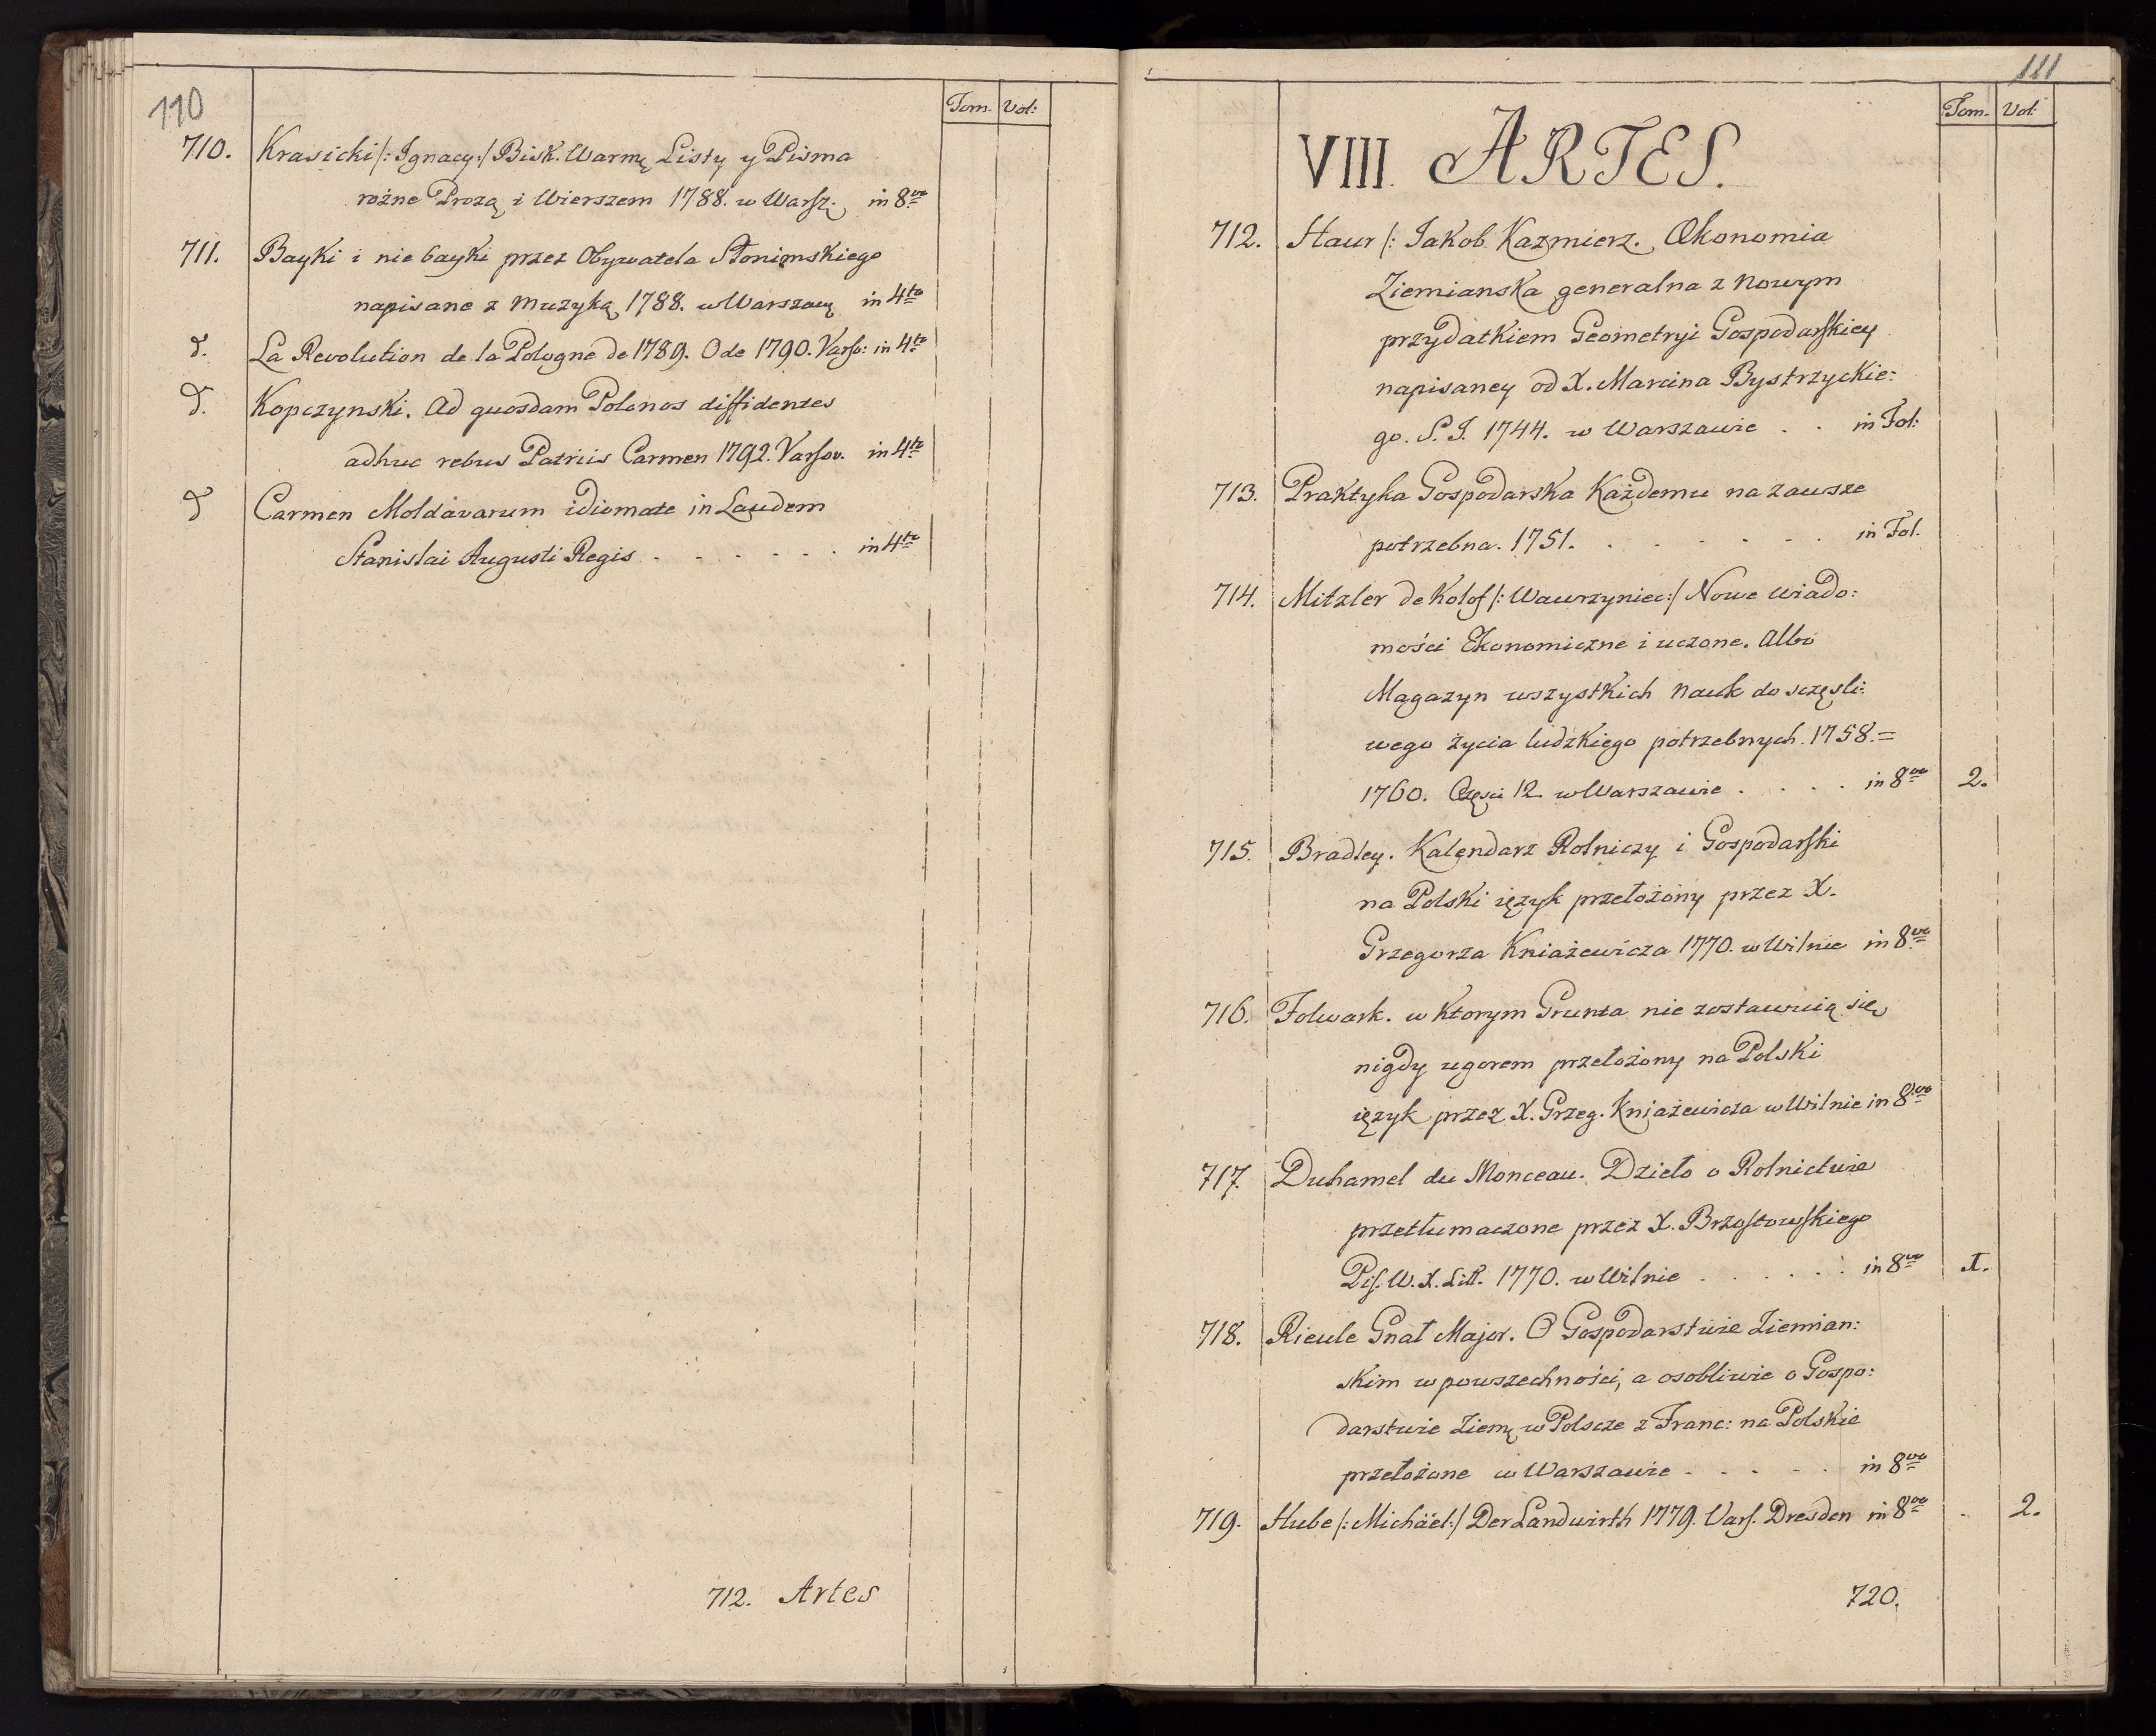 110
Tom. Vol:
710. Krasicki /: Ignacy :/ Bisk. Warmę Listy y Pisma
rożne Prozą i Wierszem 1788. w Warsz. in 8vo
711. Bayki i nie bayki przez Obywatela Słonimskiego
napisane z Muzyką 1788. w Warszaw in 4to
d. La Revolution de la Pologne de 1789. Ode 1790. Varso: in 4to
d. Kopczynski. Ad quosdam Polonos diffidentes
adhuc rebus Patriis Carmen 1792. Varsov. in 4to
d Carmen Moldavarum idiomate in Laudem
Stanislai Augusti Regis . . . . . . in 4to
712. Artes
111
Tom. Vol:
VIII. ARTES.
712. Haur /: Jakob Kazmierz. Œkonomia
Ziemianska generalna z nowym
przydatkiem Geometryi Gospodarskiey
napisaney od X. Marcina Bystrzyckie:
go. S. J. 1744. w Warszawie . . in Fol:
713. Praktyka Gospodarska Każdemu na zawsze
potrzebna. 1751. . . . . . . in Fol.
714. Mitzler de Kolof /: Wawrzyniec :/ Nowe wiado:
mości Ekonomiczne i uczone. Albo
Magazyn wszystkich nauk do szczęśli:
wego życia ludzkiego potrzebnych. 1758.=
1760. Części 12 w Warszawie . . . . in 8vo 2.
715. Bradley. Kalendarz Rolniczy i Gospodarski
na Polski ięzyk przełożony przez X.
Grzegorza Kniażewicza 1770. w Wilnie in 8vo
716. Folwark. w Ktorym Grunta nie zostawuią się
nigdy ugorem przełożony na Polski
ięzyk przez X. Grzeg. Kniażewicza w Wilnie in 8vo
717. Duhamel du Monceau. Dzieło o Rolnictwie
przetłumaczone przez X. Brzostowskiego
Pis. W. X. Litt. 1770. w Wilnie . . . . . . in 8vo I.
718. Rieule Gnał Major. O Gospodarstwie Ziemian:
skim w powszechności, a osobliwie o Gospo:
darstwie Ziemę w Polscze z Franc: na Polskie
przełożone w Warszawie . . . . . in 8vo
719. Hube /: Michäel :/ Der Landwirth 1779. Vars. Dresden in 8vo . 2.
720.